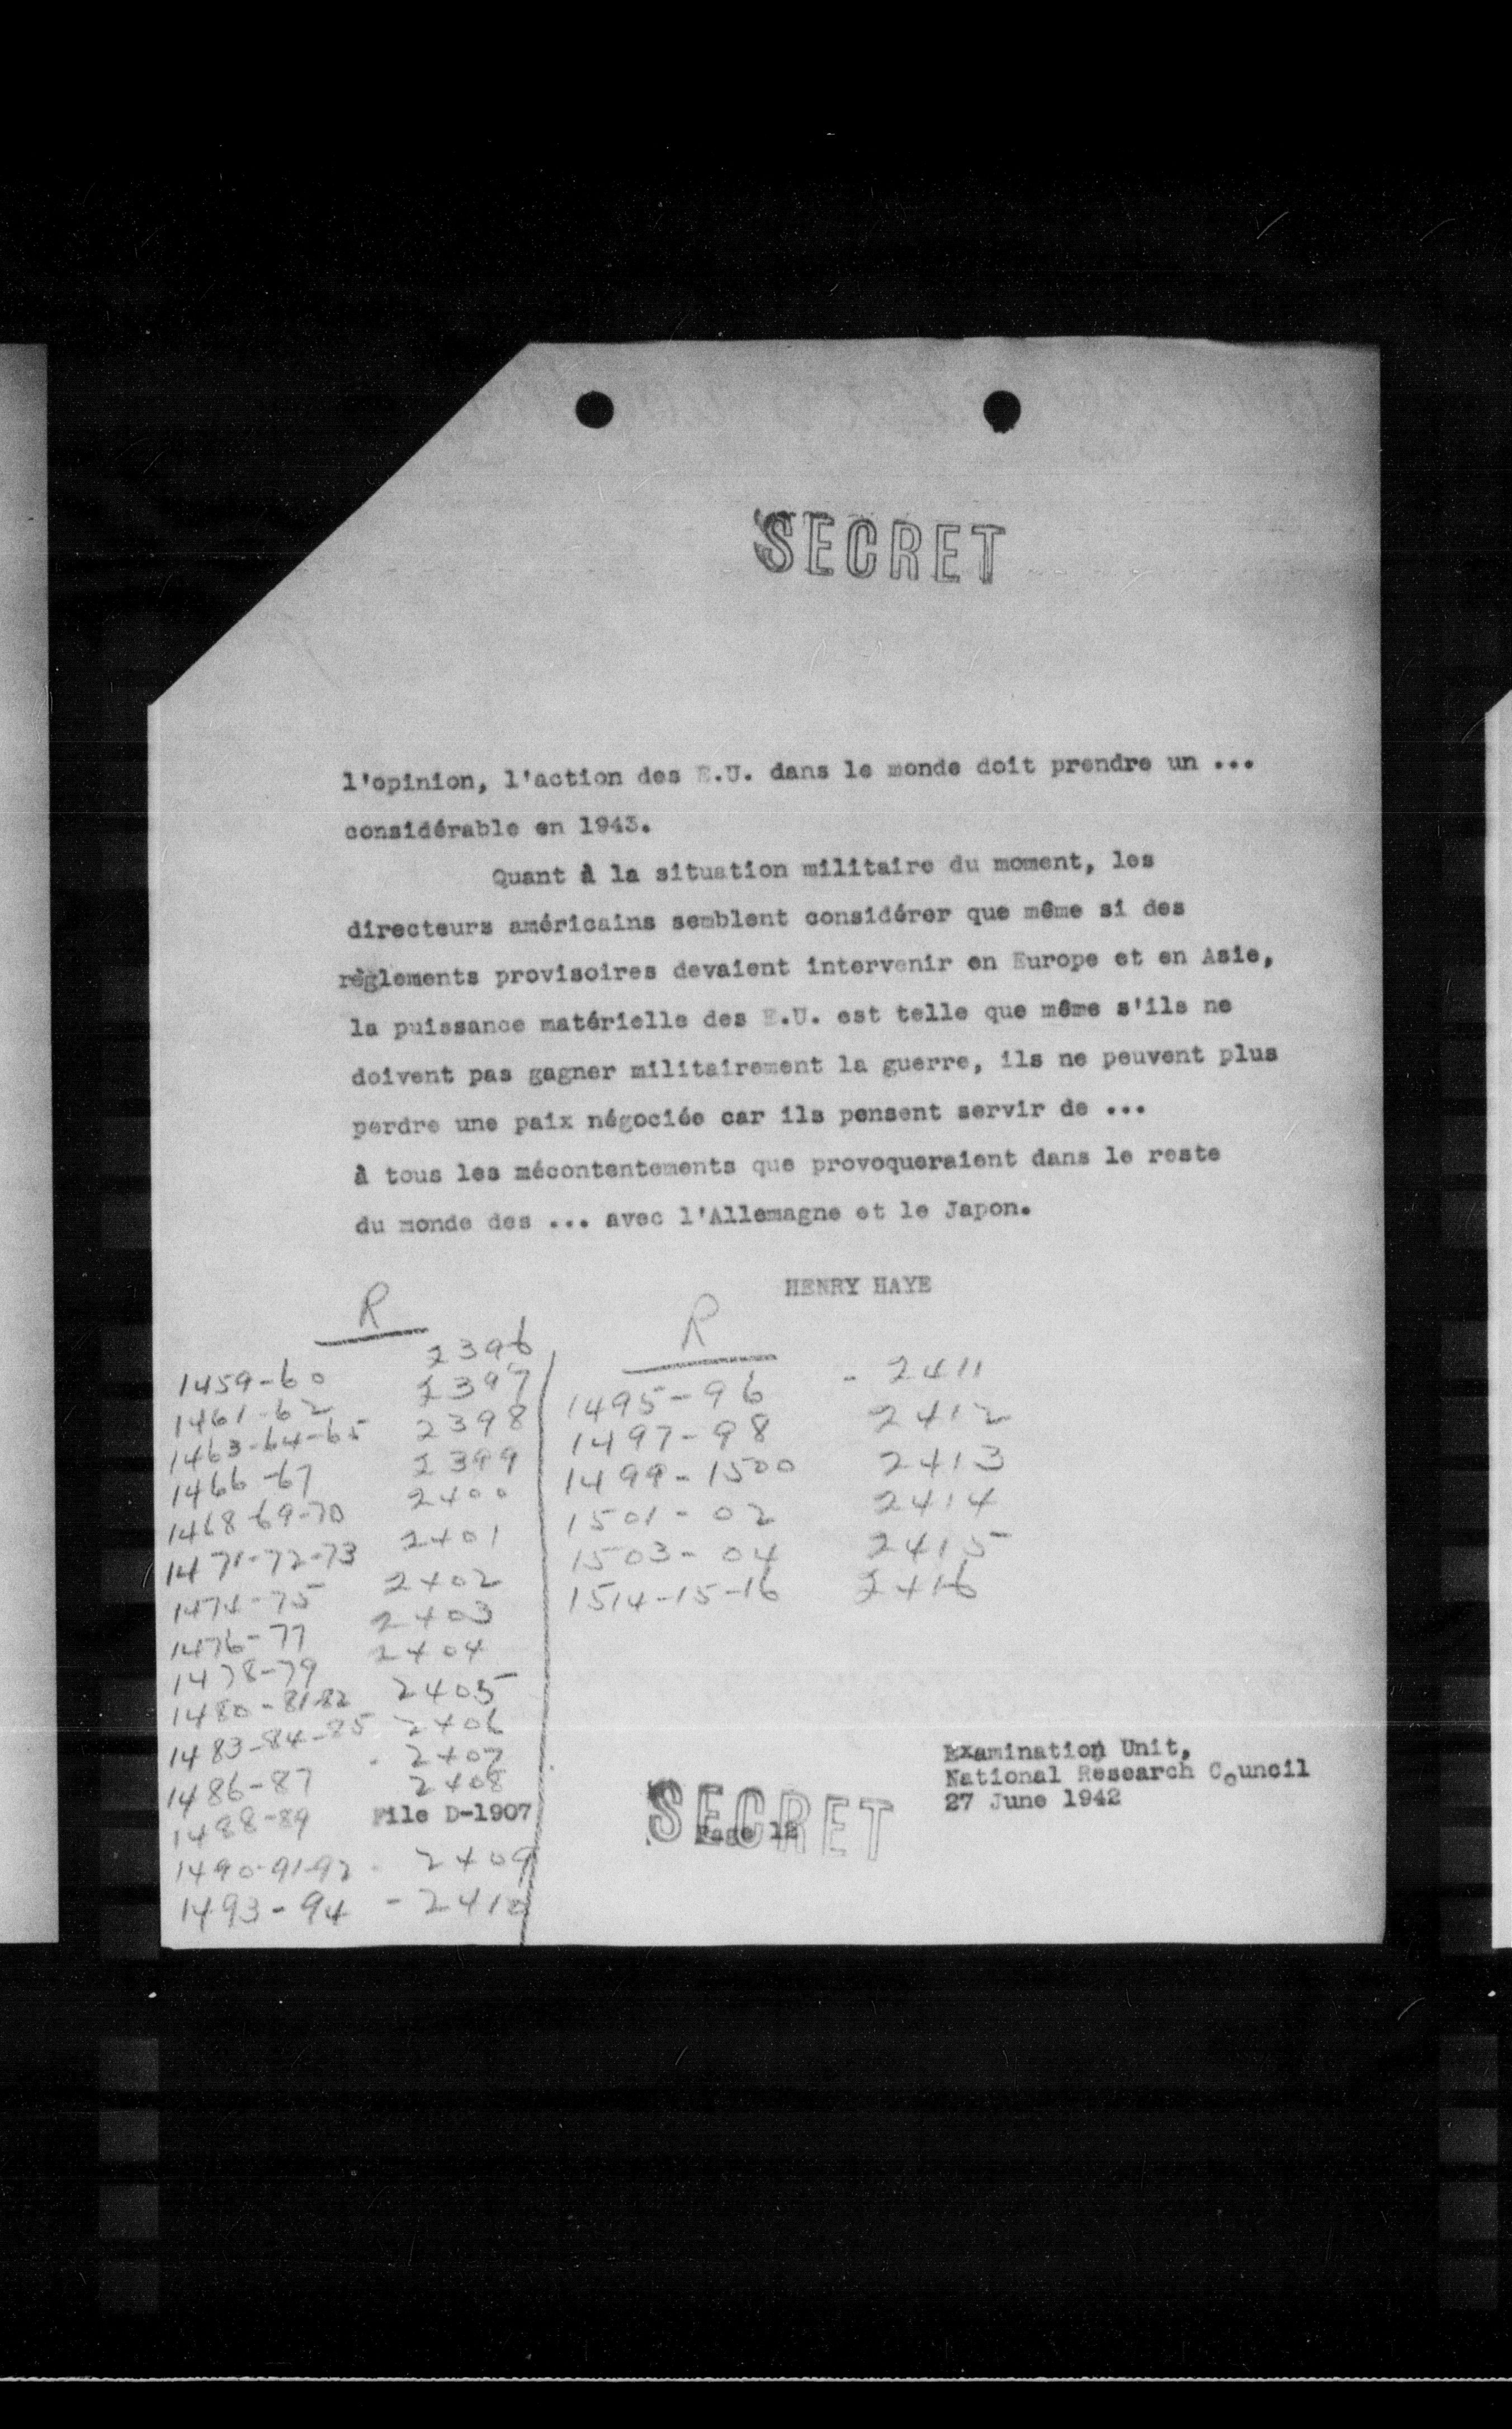 SECRET
l'opinion, l'action des E.U. dans le monde doit prendre un ...
considérable en 1943.
Quant à la situation militaire du moment, les
directeurs américains semblent considérer que même si des
règlements provisoires devaient intervenir en Europe et en Asie,
la puissance matérielle des E.U. est telle que même s'ils ne
doivent pas gagner militairement la guerre, ils ne peuvent plus
perdre une paix négociée car ils pensent servir de ...
à tous les mécontentements que provoqueraient dans le reste
du monde des ... avec l'Allemagne et le Japon.
HENRY HAYE
R
1459-60 2396
1461-62 2397
1463-64-65 2398
1466-67 2399
1468-69-70 2400
1471-72-73 2401
1474-75 2402
1476-77 2403
1478-79 2404
1480-81-82 2405
1483-84-85 2406
1486-87 2407
1488-89 2408
File D-1907
1490-91-92 2409
1493-94 - 2410
R
1495-96 - 2411
1497-98 2412
1499-1500 2413
1501-02 2414
1503-04 2415
1514-15-16 2416
Examination Unit,
National Research Council
27 June 1942
SECRET
Page 12